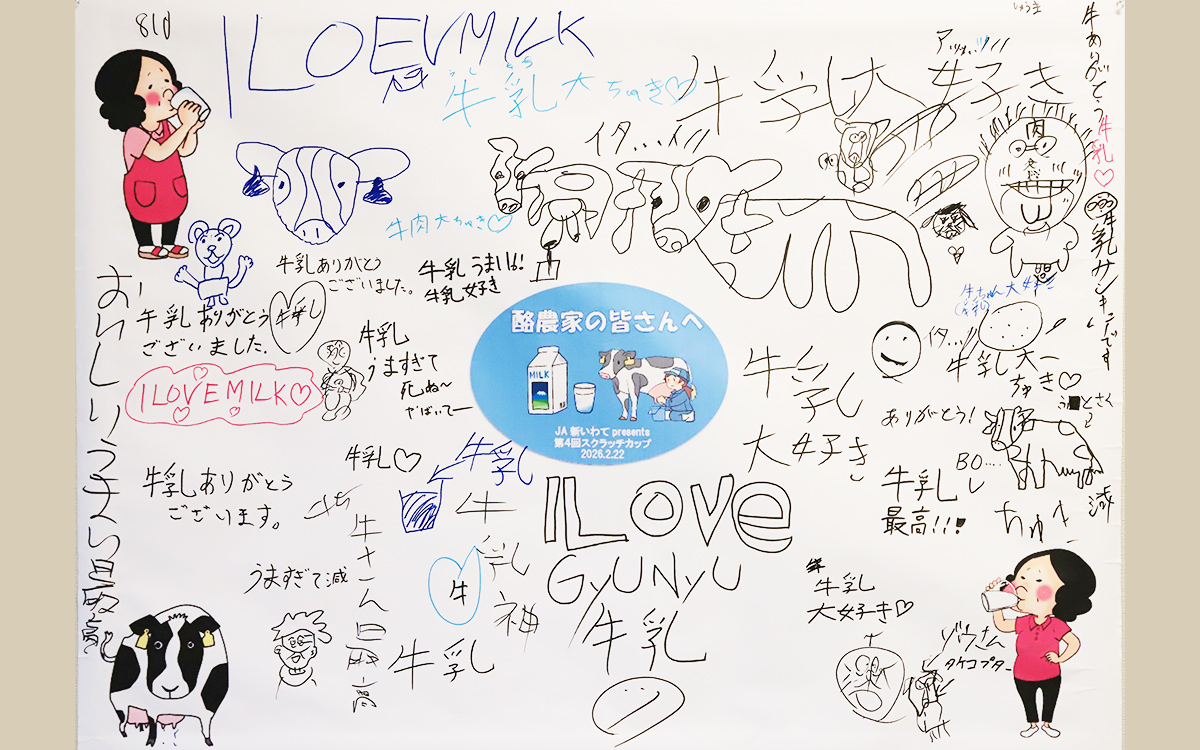 I LOEV MILK
牛乳大ちゅき♡
牛乳大好き
牛ありがとう牛乳♡
イタ...
牛肉大ちゅき♡
牛乳ありがとう
ございました。
牛乳うまい!
牛乳好き
牛乳ありがとう
ございました.
牛乳
I LOVE MILK♡
牛乳
うますぎて
死ぬ~
やばいてー
酪農家の皆さんへ
MILK
JA 新いわて presents
第4回スクラッチカップ
2026.2.22
牛乳
大好き
イタ...
牛乳大
ちゅき♡
ありがとう!
牛乳
最高!!!
BO....
牛乳♡
牛乳
牛乳ありがとう
ございます。
牛さん最高
牛
乳
神
うますぎて滅
牛
牛乳
I LOVE
GyUNyU
牛乳
牛乳
大好き♡
ゾウさん
タケコプター
ちゅき
滅
肉